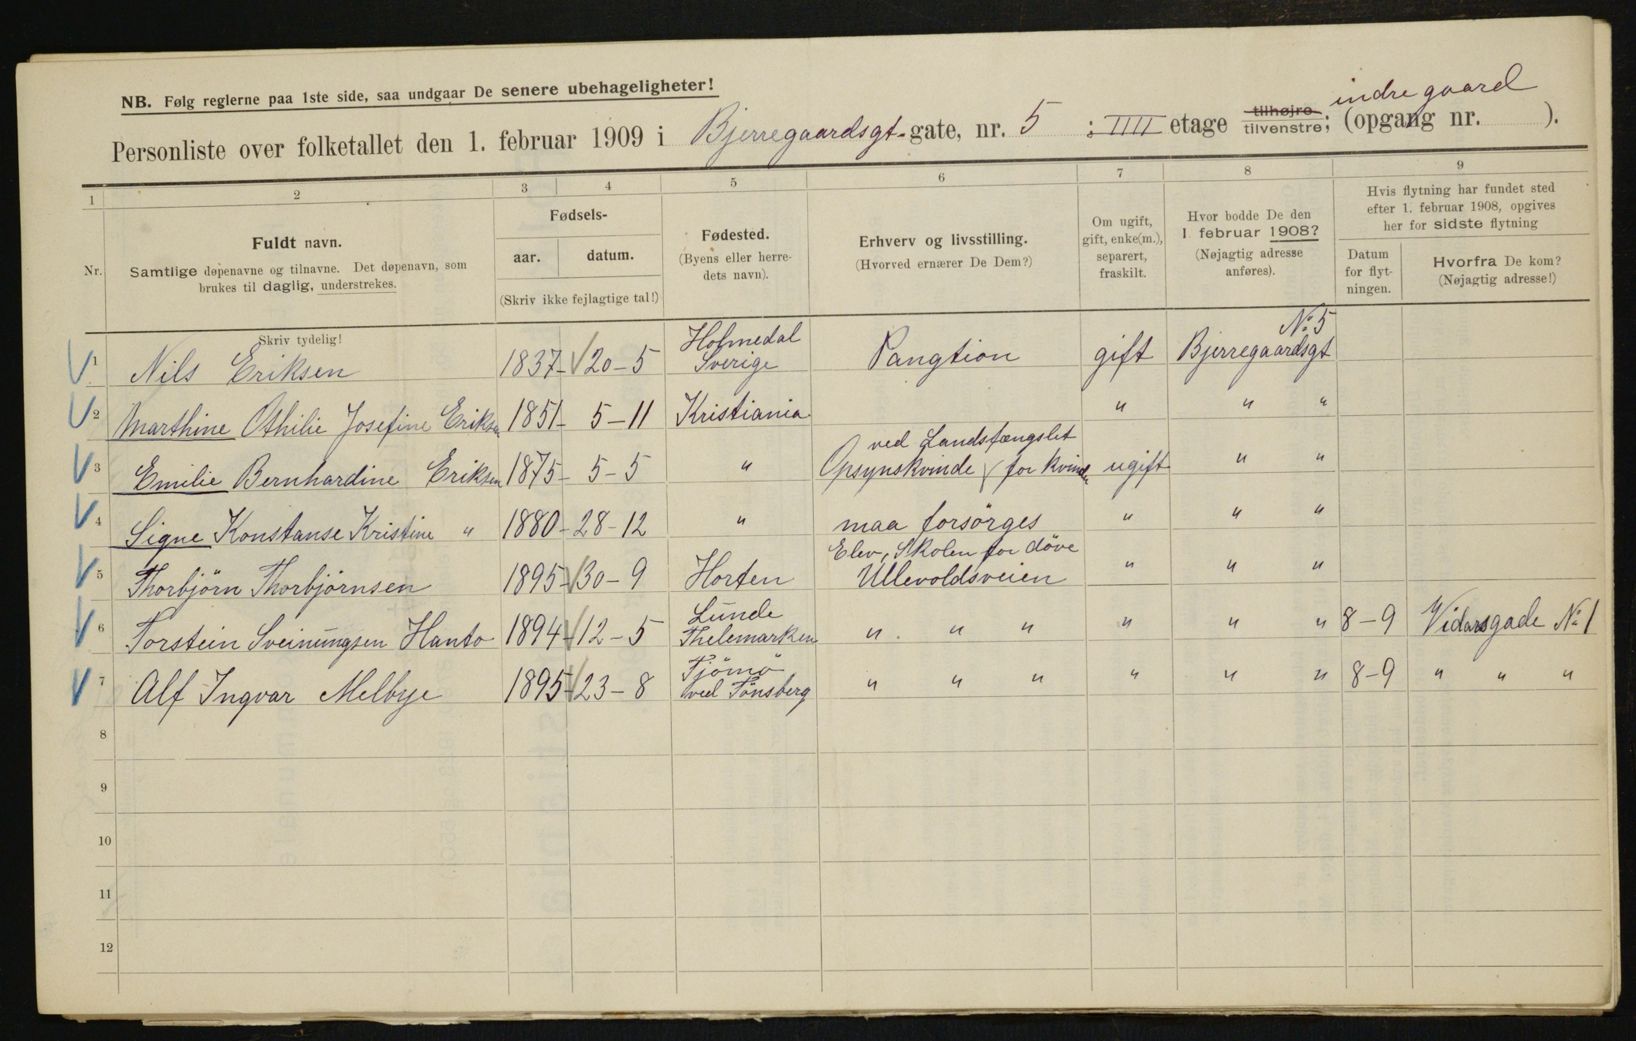 NB. Følg reglerne paa 1ste side, saa undgaar De senere ubehageligheter!
indre gaard
Personliste over folketallet den 1. februar 1909 i Bjerregaardsgt-gate, nr. 5 : IIII etage tilhøjre tilvenstre; (opgang nr. ).
1 2 3 4 5 6 7 8 9
Nr.
Fuldt navn.
Samtlige døpenavne og tilnavne. Det døpenavn, som
brukes til daglig, understrekes.
Skriv tydelig!
Fødsels-
aar. datum.
(Skriv ikke fejlagtige tal!)
Fødested.
(Byens eller herre-
dets navn).
Erhverv og livsstilling.
(Hvorved ernærer De Dem?)
Om ugift,
gift, enke(m.),
separert,
fraskilt.
Hvor bodde De den
1 februar 1908?
(Nøjagtig adresse
anføres).
Hvis flytning har fundet sted
efter 1. februar 1908, opgives
her for sidste flytning
Datum
for flyt-
ningen.
Hvorfra De kom?
(Nøjagtig adresse!)
Holmedal No 5
1 Nils Eriksen 1837 - 20 - 5 Sverige Pangtion gift Bjerregaardsgt
2 Marthine Othilie Josefine Eriksen 1851 - 5 - 11 Kristiania " " "
ved Landsfængslet
3 Emilie Bernhardine Eriksen 1875 - 5 - 5 " Opsynskvinde for kvinder ugift " "
4 Signe Konstanse Kristine " 1880 - 28 - 12 " maa forsörges " " "
Elev, Skolen for döve
5 Thorbjörn Thorbjörnsen 1895 - 30 - 9 Horten Ullevoldsveien " " "
Lunde
6 Torstein Sveinungsen Hanto 1894 - 12 - 5 Thelemarken " " " " " " 8 - 9 Vidarsgade No 1
Tjömö
7 Alf Ingvar Melbye 1895 - 23 - 8 ved Tönsberg " " " " " " 8 - 9 " " "
8
9
10
11
12